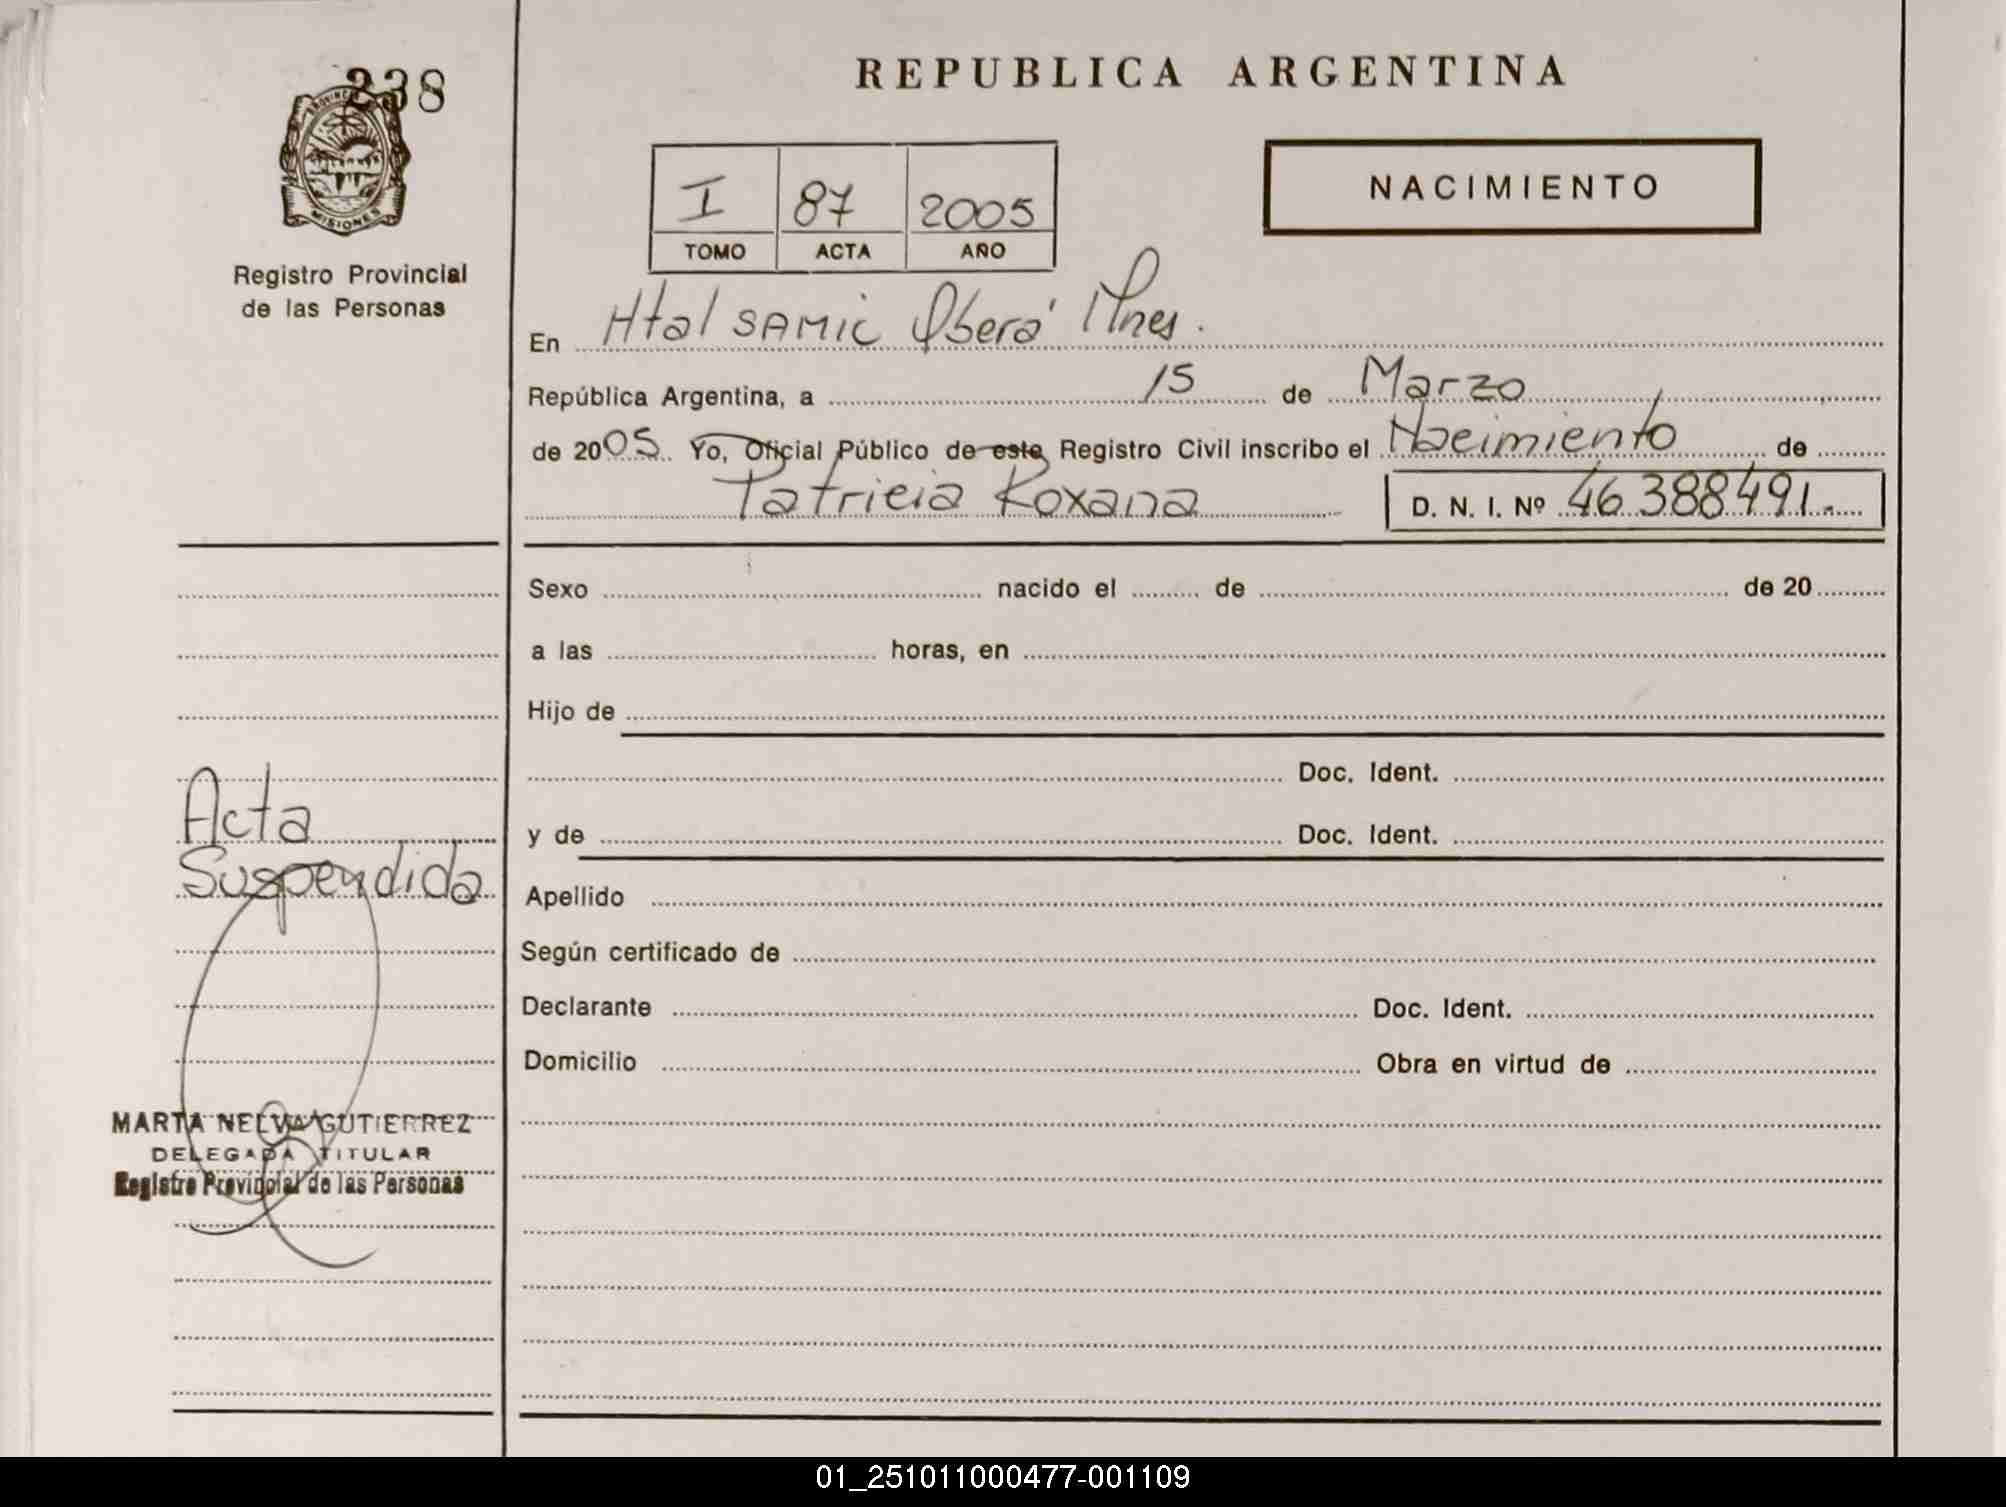 238
PROVINCIA
MISIONES
Registro Provincial
de las Personas
REPUBLICA ARGENTINA
NACIMIENTO
I 87 2005
TOMO ACTA AÑO
En Htal SAMIC Oberá Mnes.
República Argentina, a 15 de Marzo
de 2005. Yo, Oficial Público de este Registro Civil inscribo el Nacimiento de
Patricia Roxana D. N. I. Nº 46388491.-
Sexo nacido el de de 20
a las horas, en
Hijo de
Doc. Ident.
y de Doc. Ident.
Apellido
Según certificado de
Declarante Doc. Ident.
Domicilio Obra en virtud de
Acta
Suspendida
MARTA NELVA GUTIERREZ
DELEGADA TITULAR
Registro Provincial de las Personas
01_251011000477-001109